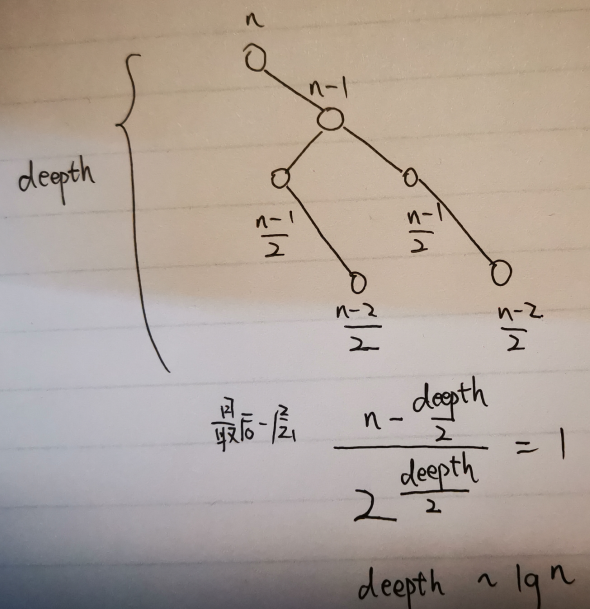 n
n-1
deepth
\frac{n-1}{2} \frac{n-1}{2}
\frac{n-2}{2} \frac{n-2}{2}
\frac{n - \frac{deepth}{2}}{2^{\frac{deepth}{2}}} = 1
deepth ~ lg n